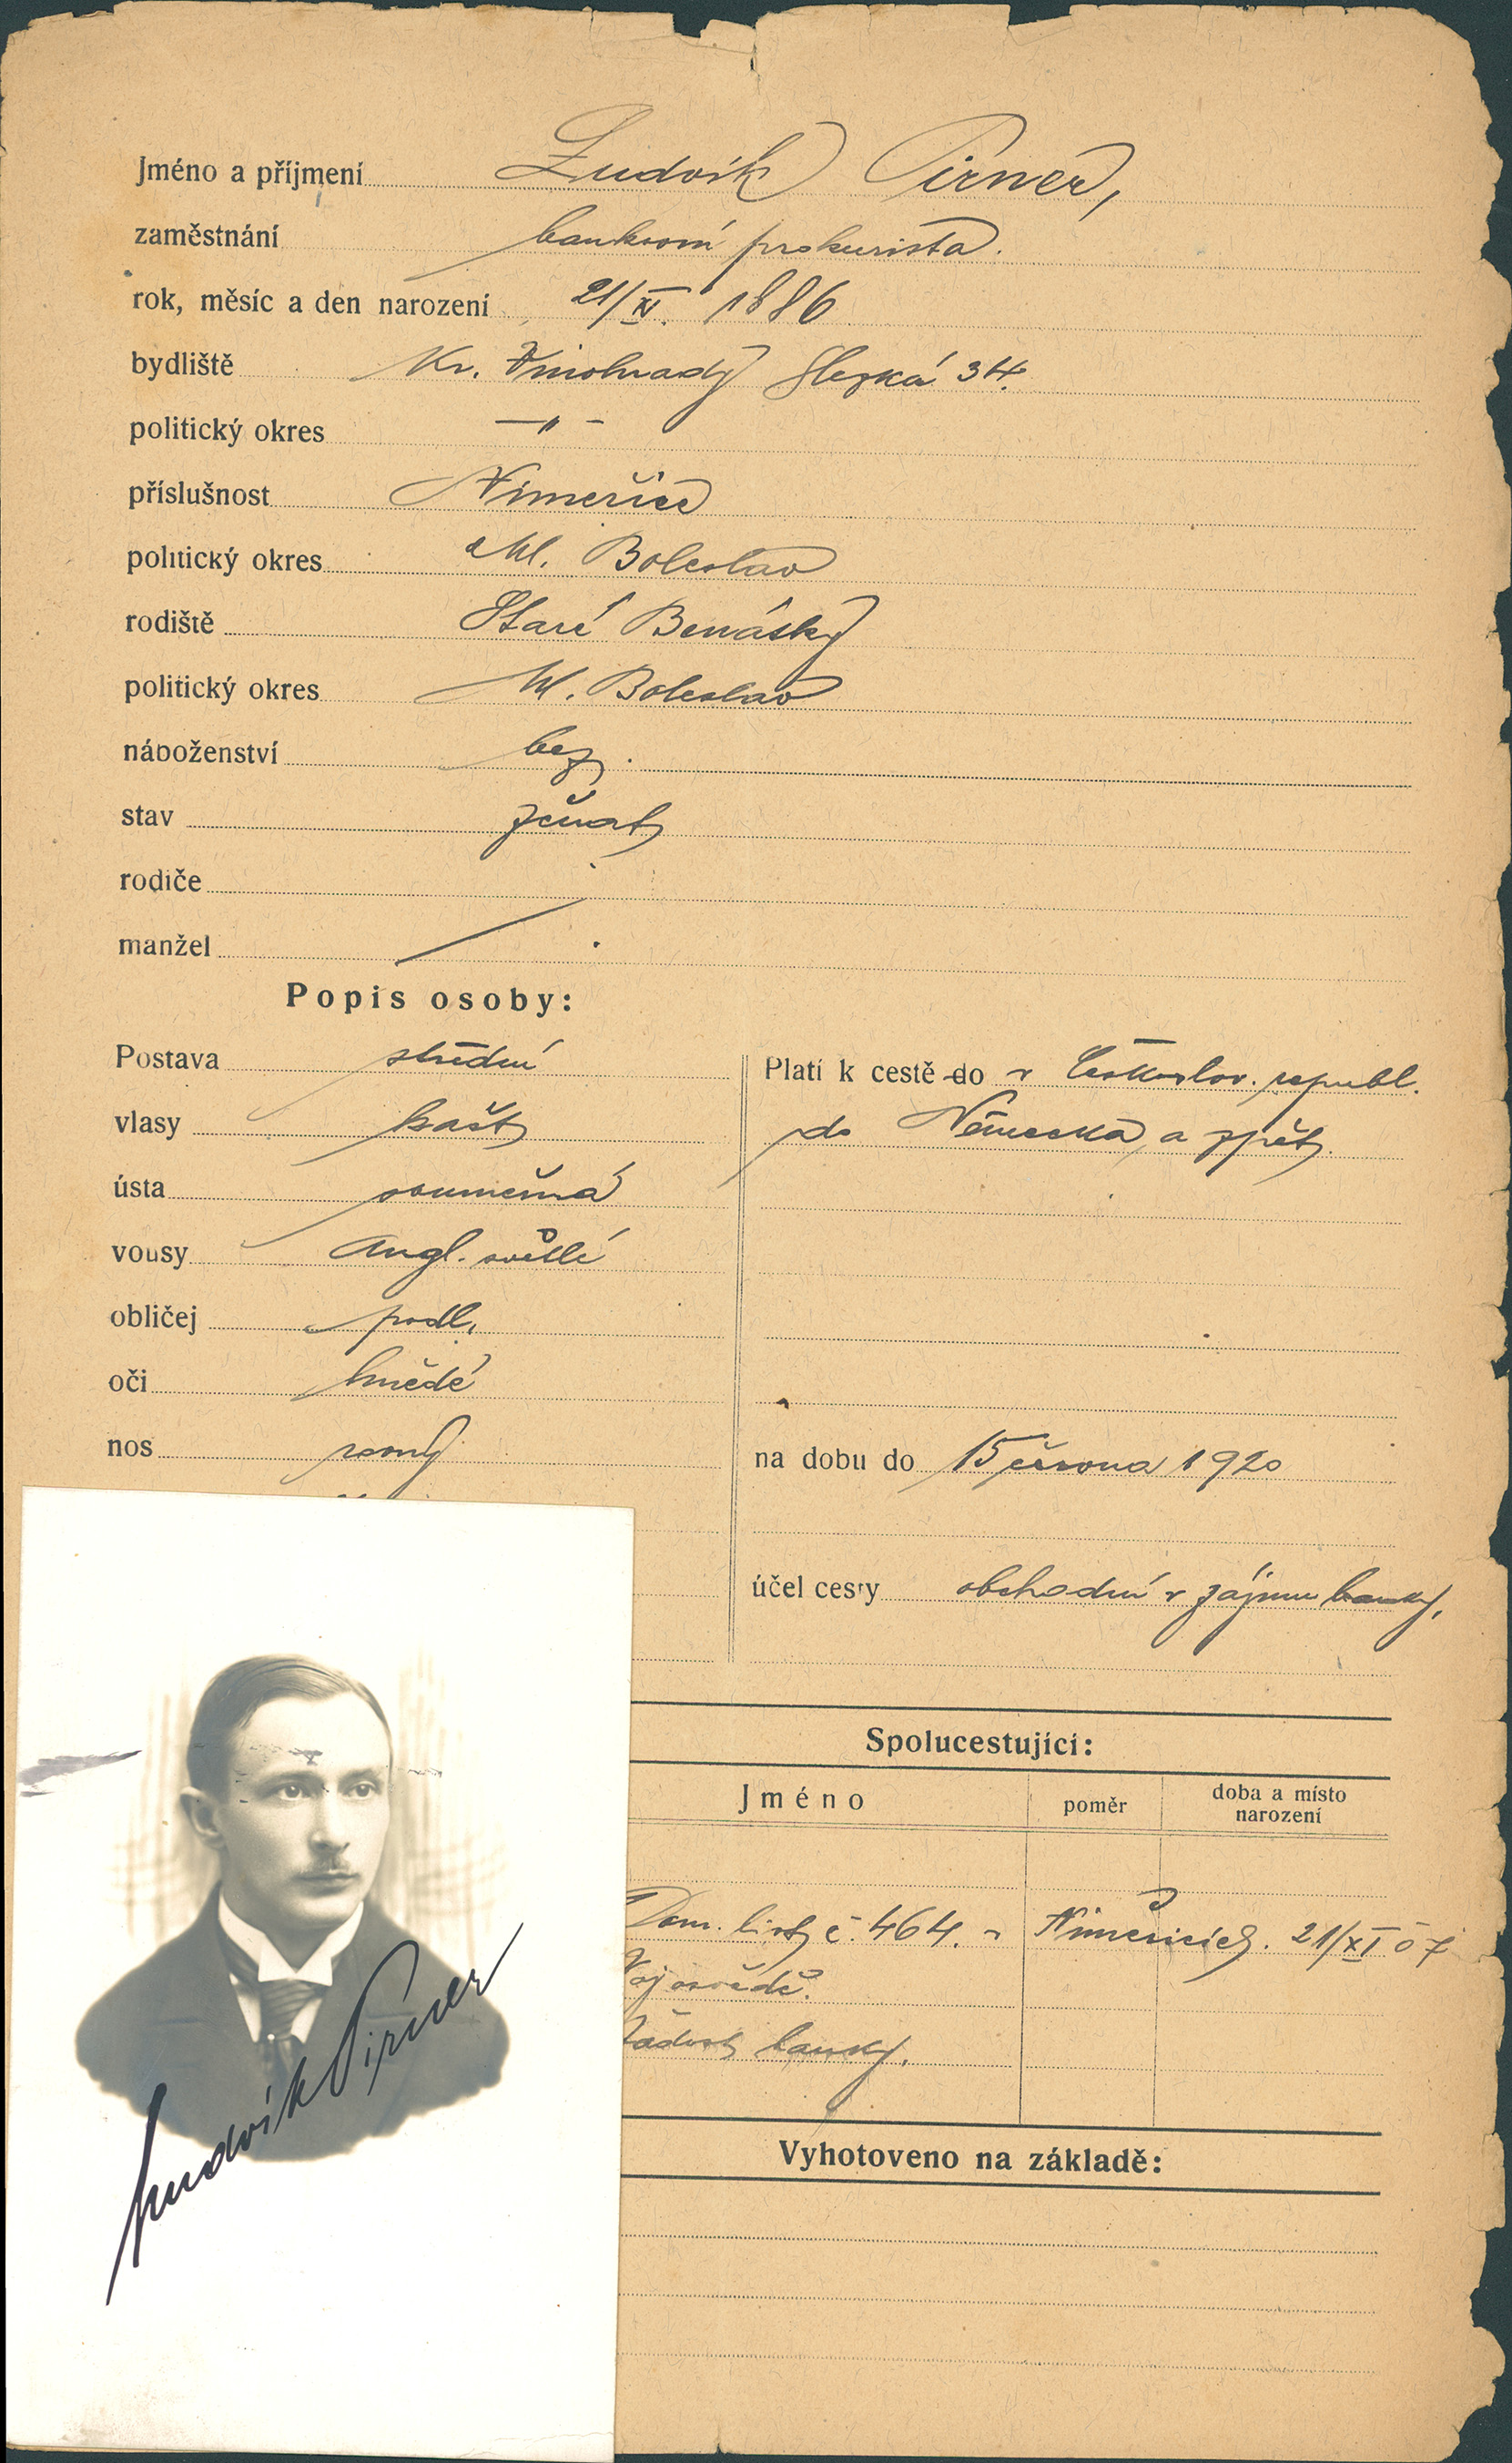 Jméno a příjmení Ludvík Pirner,
zaměstnání bankovní prokurista.
rok, měsíc a den narození 21/XI. 1886
bydliště Kr. Vinohrady Slezká 34.
politický okres —〃-
příslušnost Nimeřice
politický okres Ml. Boleslav
rodiště Staré Benátky
politický okres Ml. Boleslav
náboženství bez.
stav ženat
rodiče
manžel
Popis osoby:
Postava střední
vlasy kašt
ústa souměrná
vousy Angl. světlé
obličej podl.
oči hnědé
nos rovný
Platí k cestě do v Českoslov. republ.
do Německa a zpět.
na dobu do 15 června 1920
účel cesty obchodní v zájmu banky.
Spolucestující:
Jméno poměr doba a místo narození
Dom. list č. 464. v Nimeřicích. 21/XI 07
Voj osvědč.
Žádost banky.
Vyhotoveno na základě:
Ludvík Pirner